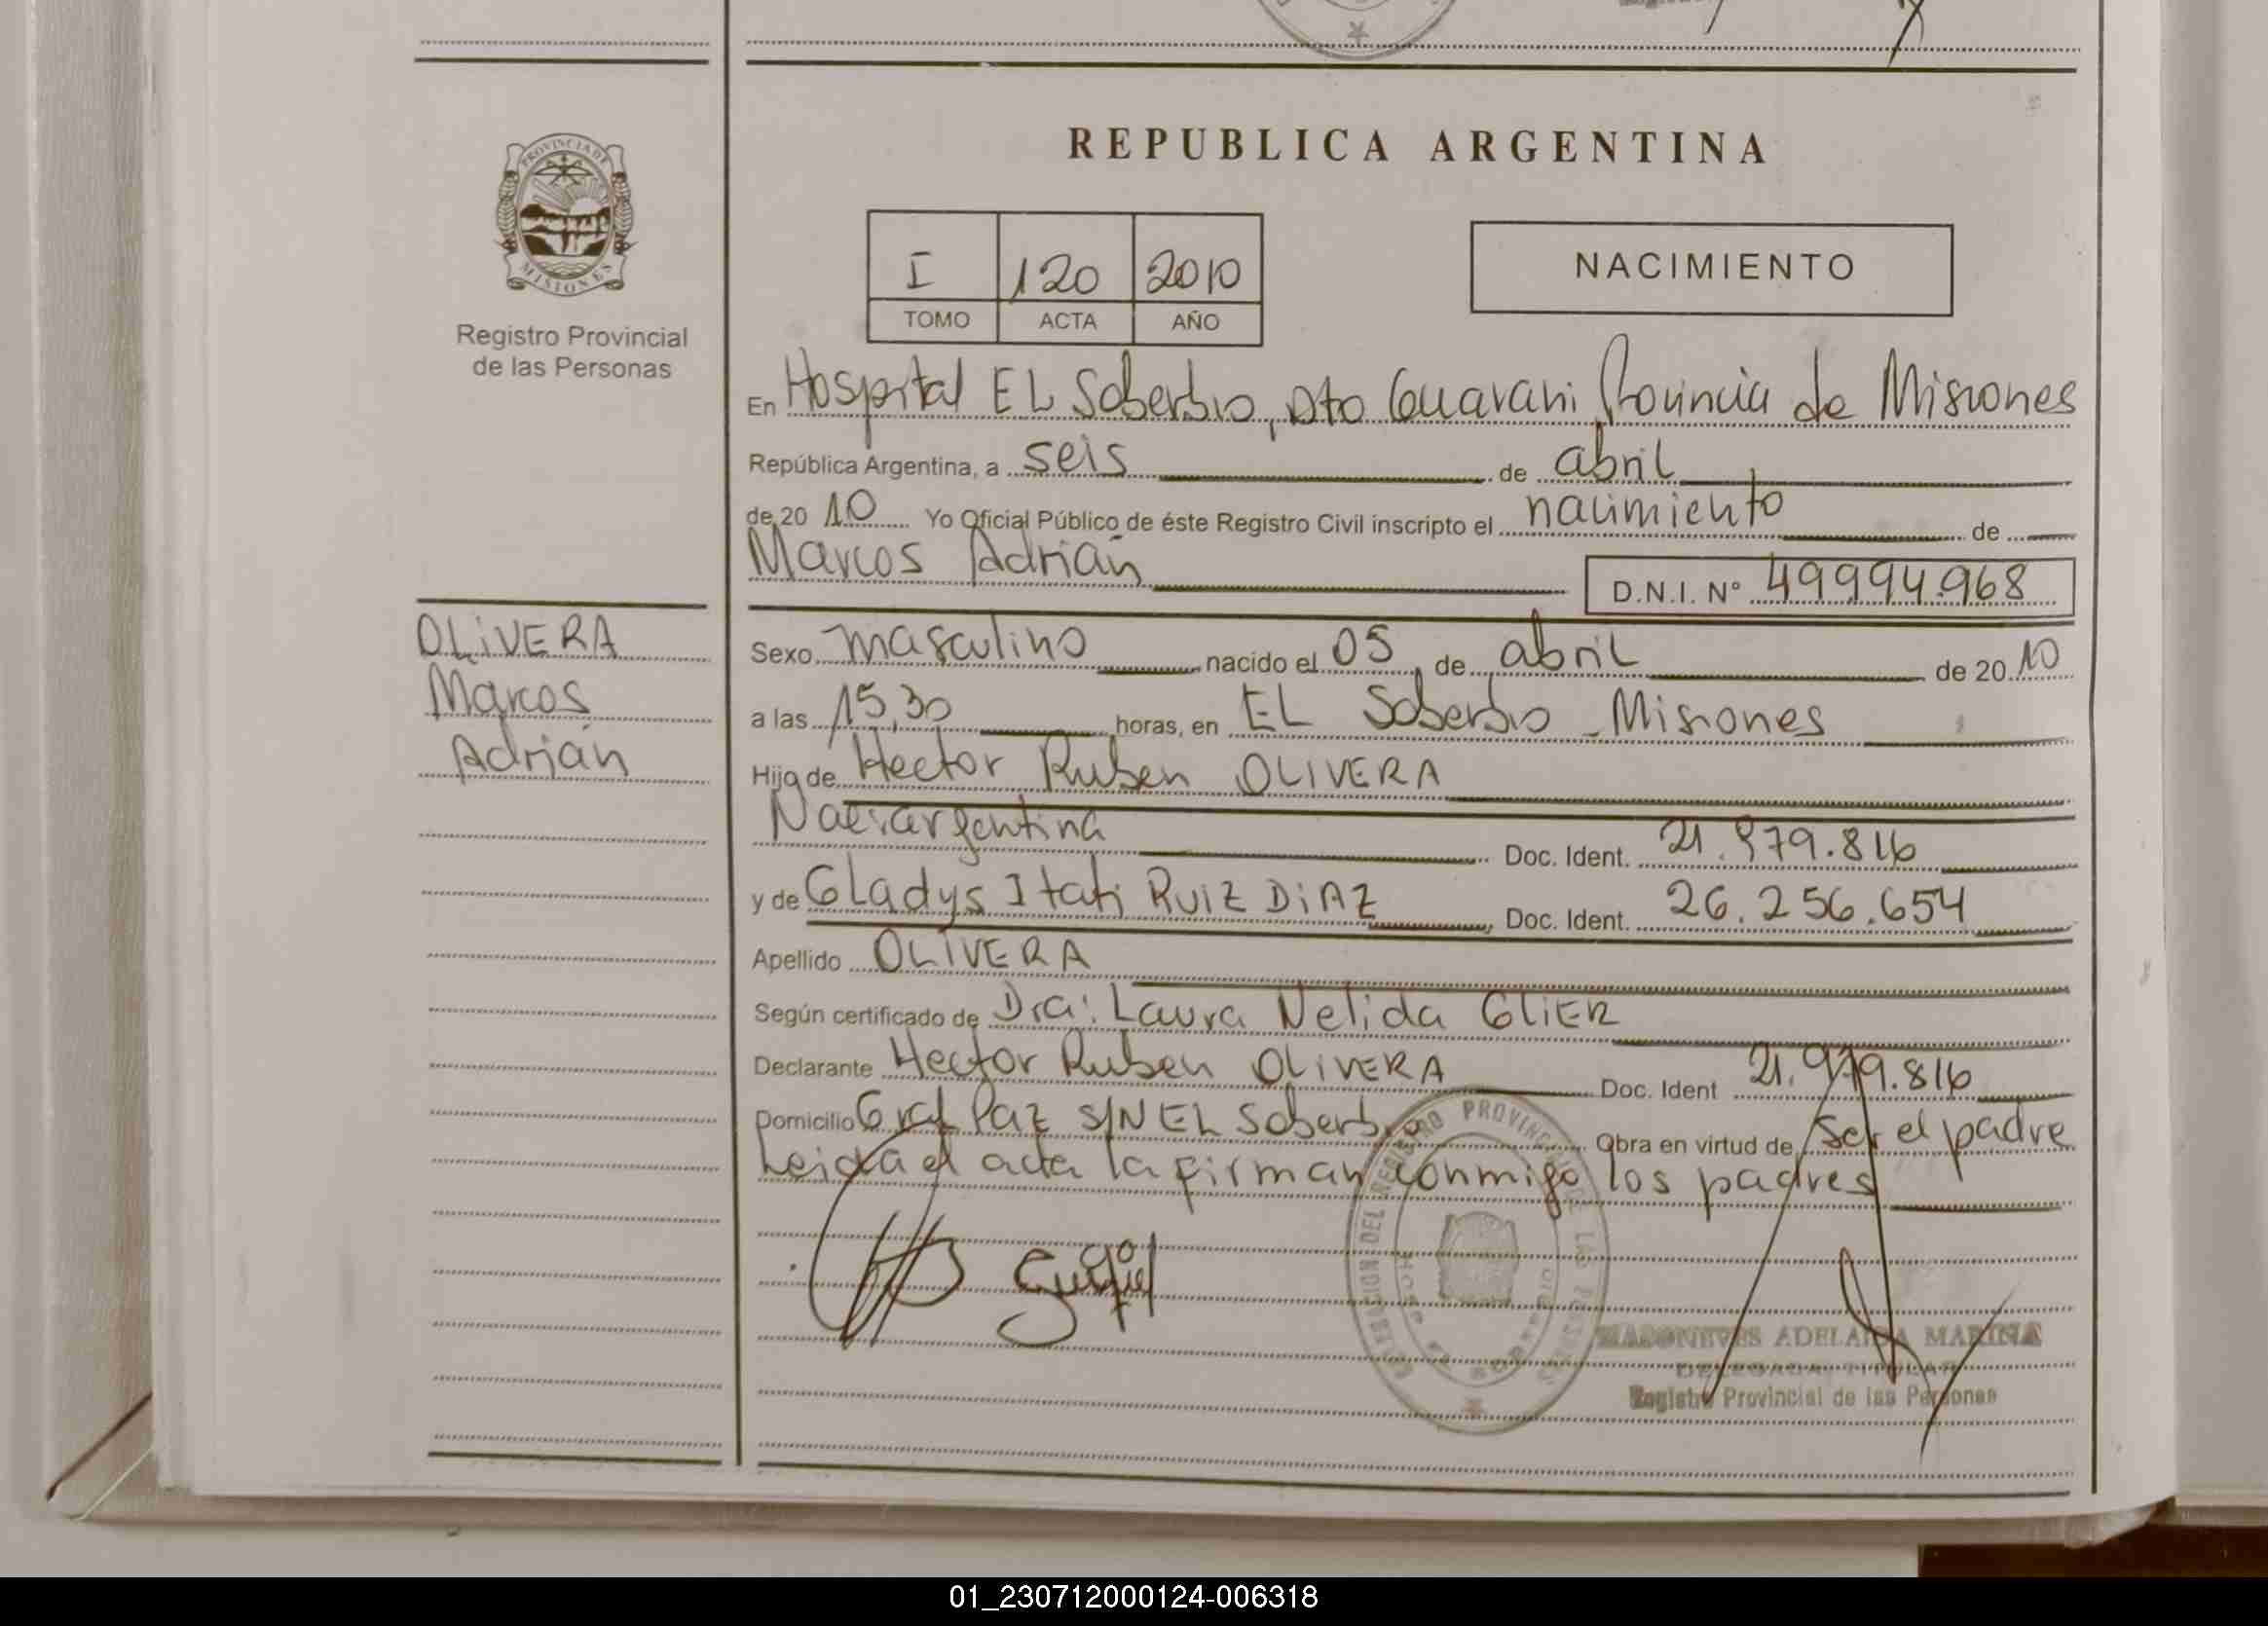 REPUBLICA ARGENTINA
PROVINCIA DE
MISIONES
Registro Provincial
de las Personas
I 120 2010
TOMO ACTA AÑO
NACIMIENTO
En Hospital EL Soberbio, Dto Guarani Provincia de Misiones
República Argentina, a seis de abril
de 20 10 Yo Oficial Público de éste Registro Civil inscripto el nacimiento de
Marcos Adrián D.N.I. N° 49994.968
OLIVERA
Marcos
Adrián
Sexo masculino nacido el 05 de abril de 20 10
a las 15,30 horas, en EL Soberbio - Misiones
Hijo de Hector Ruben OLIVERA
Nac. argentina Doc. Ident. 21.979.816
y de Gladys Itati RUIZ DiAZ Doc. Ident. 26.256.654
Apellido OLIVERA
Según certificado de Dra: Laura Nelida GLiER
Declarante Hector Ruben OLIVERA Doc. Ident 21.979.816
Domicilio Gral Paz S/N EL Soberbio Obra en virtud de Ser el padre
Leida el acta la firman conmigo los padres
ADELAIDA MARINA
DELEGADA TITULAR
Registro Provincial de las Personas
01_230712000124-006318